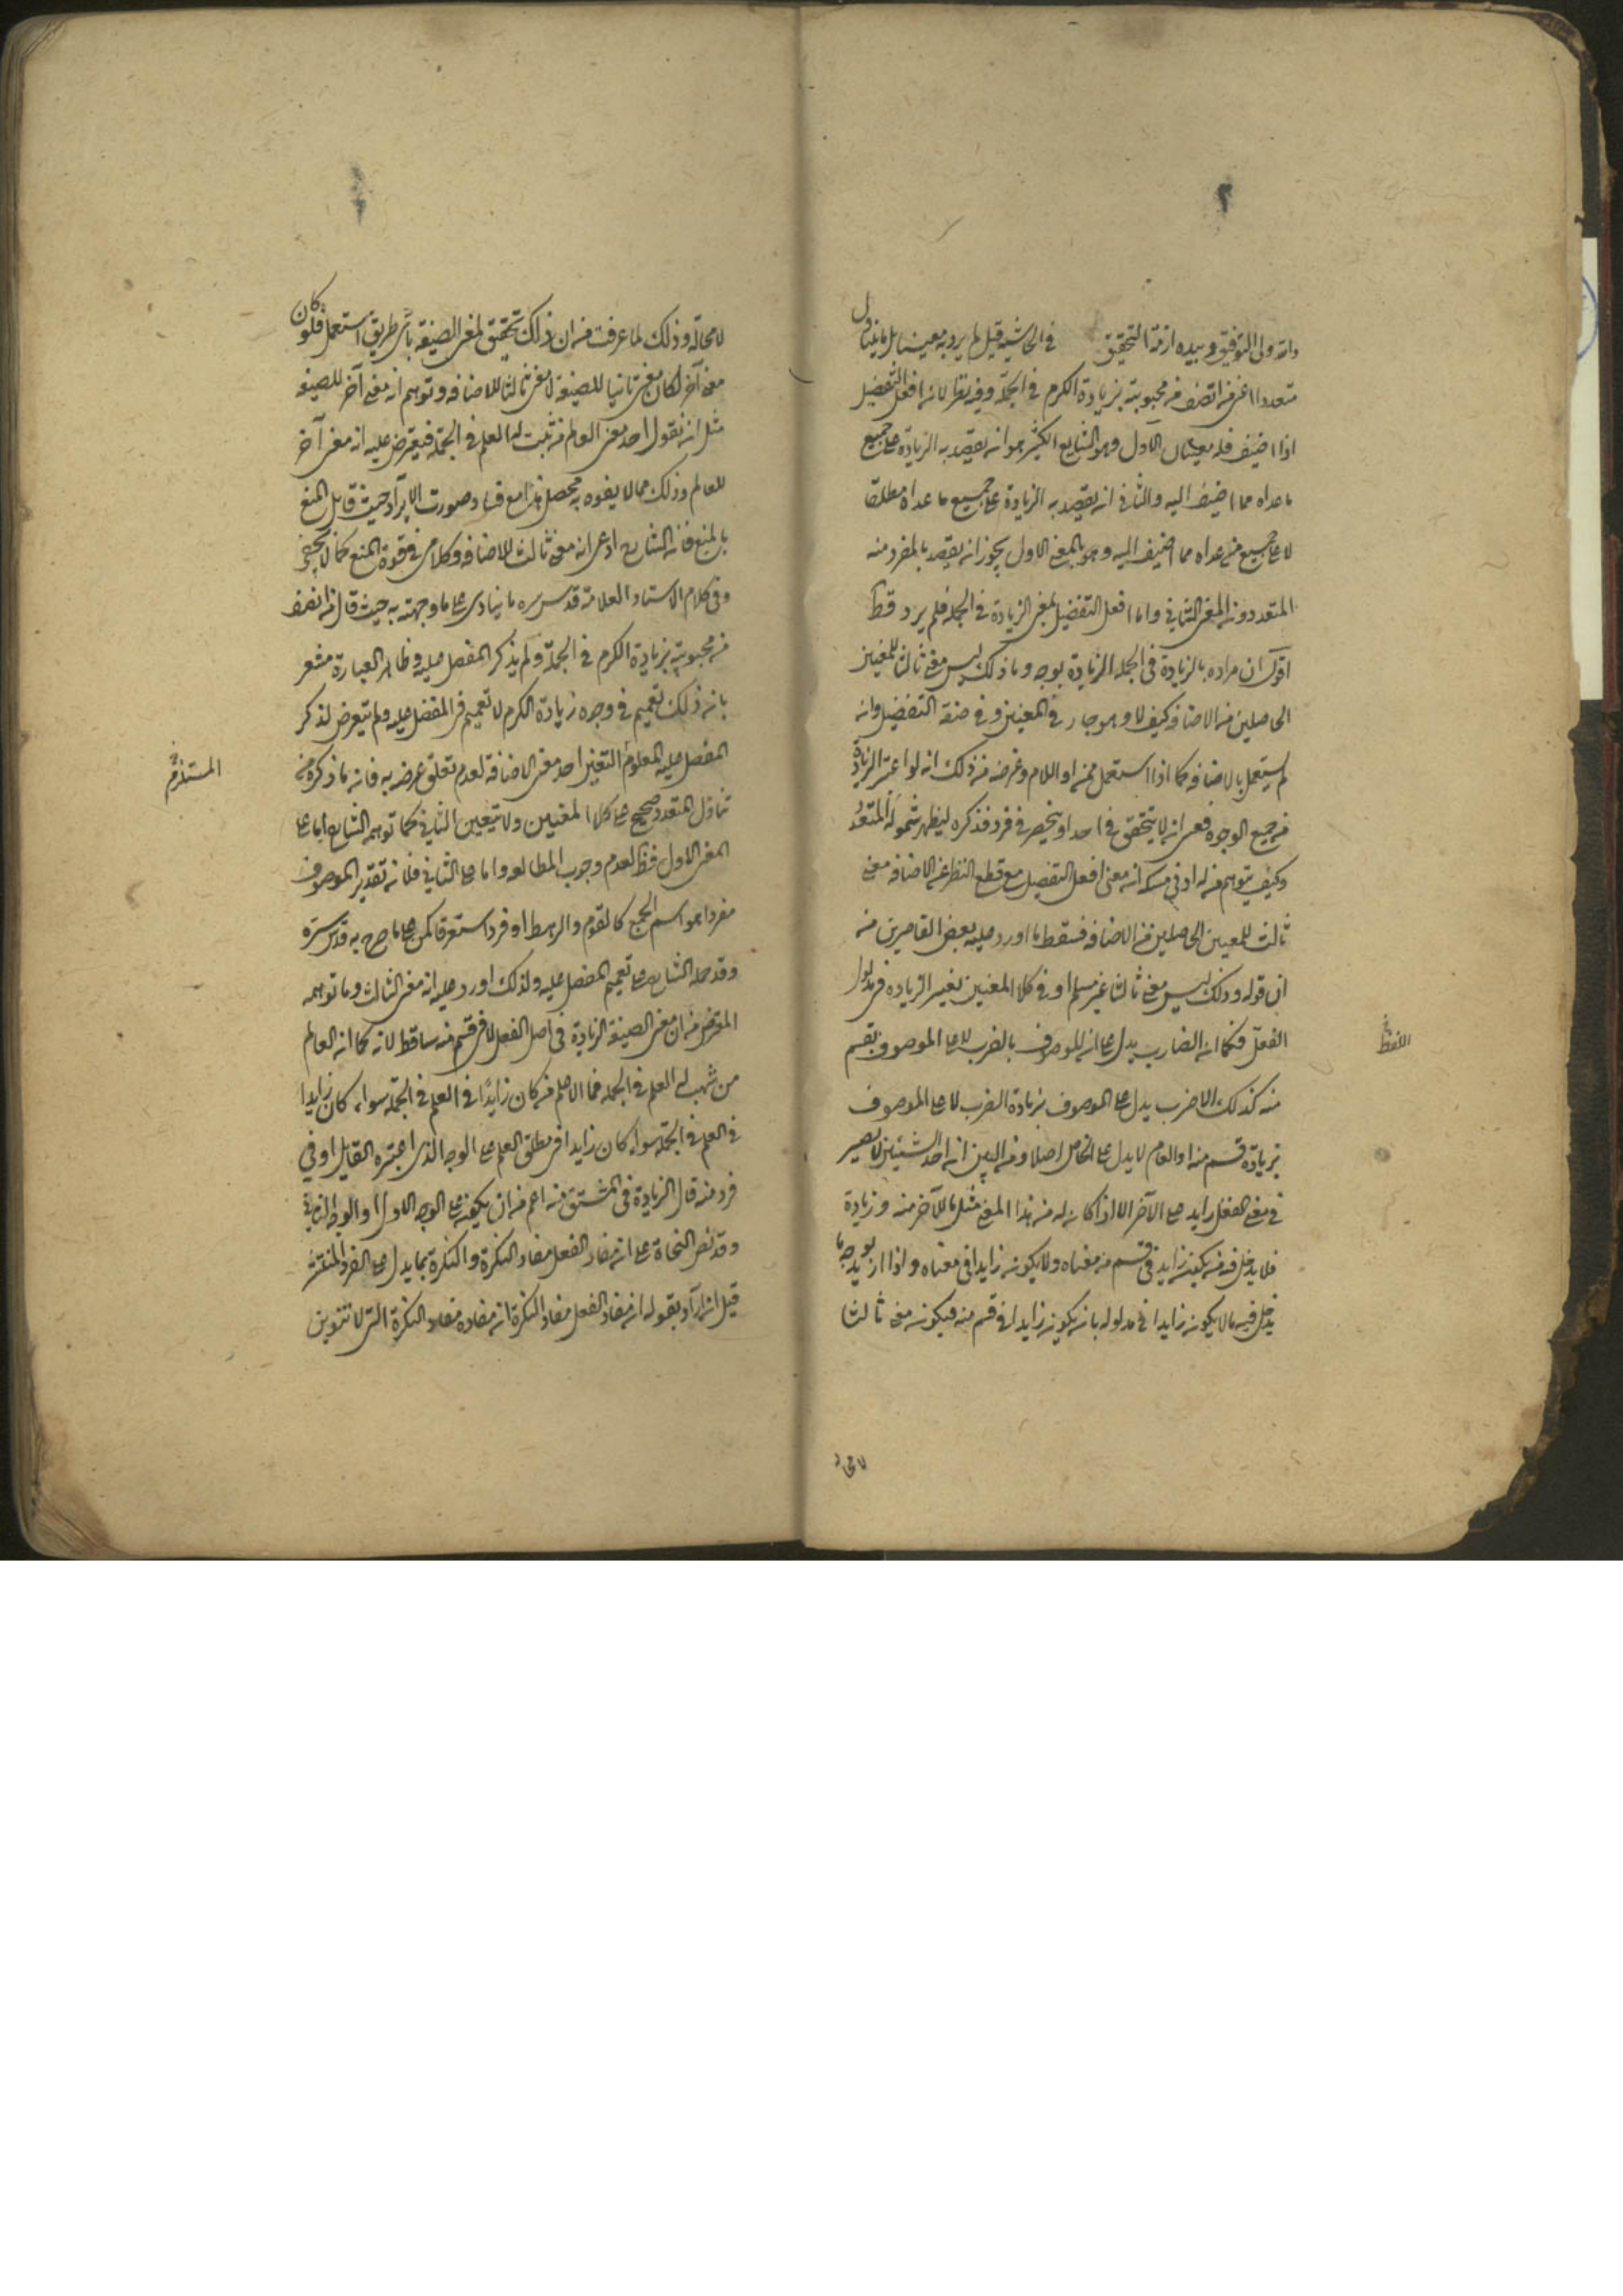 والله ولى التوفيق وبيده ازمة التحقيق في الحاشية قيل لم يرد به معينا بل ما يتناول
متعددا اعنى من اتصف من محبوبيته بزيادة الكرم في الجملة وفيه نظر لان افعل التفضيل
اذا اضيف فله معنيان الاول وهو الشايع الكثير هو ان يقصد به الزيادة على جميع
ما عداه مما اضيف اليه والثاني ان يقصد به الزيادة على جميع ما عداه مطلقا
لا على جميع من عداه مما اضيف اليه وهو بالمعنى الاول يجوز ان يقصد بالمفرد منه
المتعدد دون المعنى الثاني واما افعل التفضيل بمعنى الزيادة في الجملة فلم يرد قط
اقول ان مراده بالزيادة في الجملة الزيادة بوجه وما ذلك ليس معنى ثالثا للمعنيين
الحاصلين من الاضافة كيف لا وهو جار في المعنيين وفي صفة التفضيل وان
لم يستعمل بالاضافة كما اذا استعمل بمن او اللام وغرضه من ذلك انه لو اعتبر الزيادة
من جميع الوجوه فعسى ان لا يتحقق في احد او ينحصر في فرد فذكره ليظهر شموله المتعدد
وكيف يتوهم من له ادنى مسكة ان معنى افعل التفضيل مع قطع النظر عن الاضافة معنى
ثالث للمعنيين الحاصلين من الاضافة فسقط ما اورد عليه بعض القاصرين من
ان قوله وذلك ليس معنى ثالثا غير مسلم اذ في كلا المعنيين تغير الزيادة في مدلول
الفعل فكما ان الضارب يدل على ان الموصوف بالضرب لا على الموصوف بقسم
منه كذلك الاضرب يدل على الموصوف بزيادة الضرب لا على الموصوف
بزيادة قسم منه اذ العام لا يدل على الخاص اصلا ومن البين ان احد الشيئين لا يصير
في معنى الفعل زايد على الآخر الا اذا كان له من هذا المعنى مثل ما للآخر منه وزيادة
فلا يدخل فيه من يكون زايد في قسم من معناه ولا يكون زايدا في معناه واذا اريد بوجه ما
يدخل فيه ما لا يكون زايدا في مدلوله بان يكون زايدا في قسم منه فيكون معنى ثالثا
اللفظ
لا محالة
لا محالة وذلك لما عرفت من ان ذلك تحقيق لمعنى الصيغة بأي طريق استعمل فلو كان
معنى آخر لكان معنى ثانيا للصيغة لا معنى ثالثا للاضافة وتوهم انه معنى آخر للصيغة
مثل ان يقول احد معنى العالم من ثبت له العلم في الجملة فيعترض عليه انه معنى آخر
للعالم وذلك مما لا يفوه به محصل هذا مع فساد صورت الايراد حيث قابل المنع
بالمنع فان الشارح ادعى انه معنى ثالث للاضافة وكلامى في قوة المنع كما لا يخفى
وفي كلام الاستاد العلامة قدس سره ما ينادى على ما وجهته به حيث قال من اتصف
من محبوبيته بزيادة الكرم في الجملة ولم يذكر المفضل عليه وظاهر العبارة مشعر
بان ذلك تعميم في وجوه زيادة الكرم لا تعميم في المفضل عليه ولم يتعرض لذكر
المفضل عليه المعلوم التغير احد معنى الاضافة لعدم تعلق غرضه به فان ما ذكره من
تناول المتعدد صحيح على كلا المعنيين ولا يتعين الثاني كما توهمه الشارح اما على
المعنى الاول فظ لعدم وجوب المطابقة واما على الثاني فلان تقدير الموصوف
مفردا هو اسم الجمع كالقوم والرهط او فردا مستغرقا كمن على ما صرح به قدس سره
وقد حمله الشارح على تعميم المفضل عليه ولذلك اورد عليه انه معنى الثالث وما توهمه
المعترض من ان معنى الصيغة الزيادة في اصل الفعل لا في قسم منه ساقط لانه كما ان العالم
من ثبت له العلم في الجملة فما الاعلم من كان زايدا في العلم في الجملة سواء كان زايدا
في العلم في الجملة سواء كان زايدا في مطلق العلم على الوجه الذى اعتبره القايل او في
فرد منه قال الزيادة في المشتق منه اعم من ان يكون على الوجه الاول او الوجه الثاني
وقد نص النحاة على ان مفاد الفعل مفاد النكرة والنكرة بما يدل على الفرد المنتشر
قيل ان اراد بقوله ان مفاد الفعل مفاد النكرة ان مفاده مفاد النكرة التى لا تنوين
المستلزم